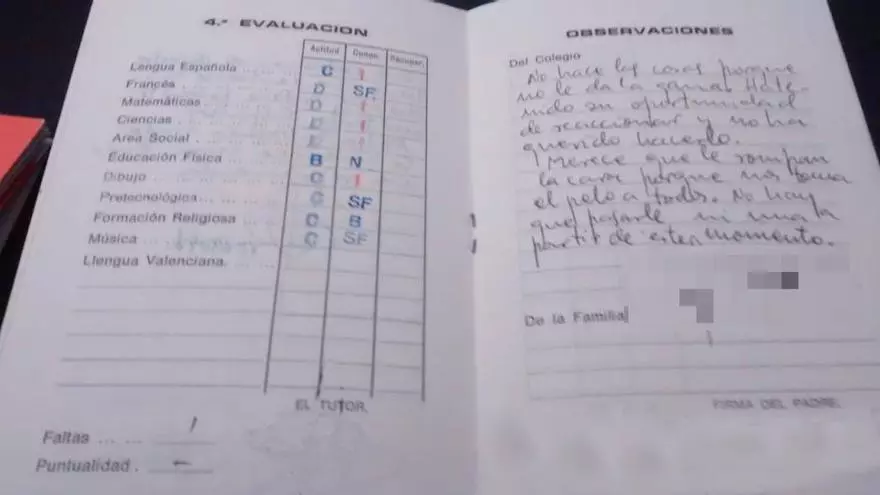 4.ª EVALUACION
Actitud Conoc. Recuper.
Lengua Española C I
Francés D SF
Matemáticas D I
Ciencias D I
Area Social E I
Educación Física B N
Dibujo C I
Pretecnológica C SF
Formación Religiosa C B
Música C SF
Llengua Valenciana
EL TUTOR,
Faltas 1
Puntualidad -
OBSERVACIONES
Del Colegio
No hace las cosas porque
no le da la gana. Ha te-
nido su oportunidad
de reaccionar y no ha
querido hacerlo.
¡Merece que le rompan
la cara porque nos toma
el pelo a todos. No hay
que pasarle ni una a
partir de este momento.
De la Familia
FIRMA DEL PADRE,